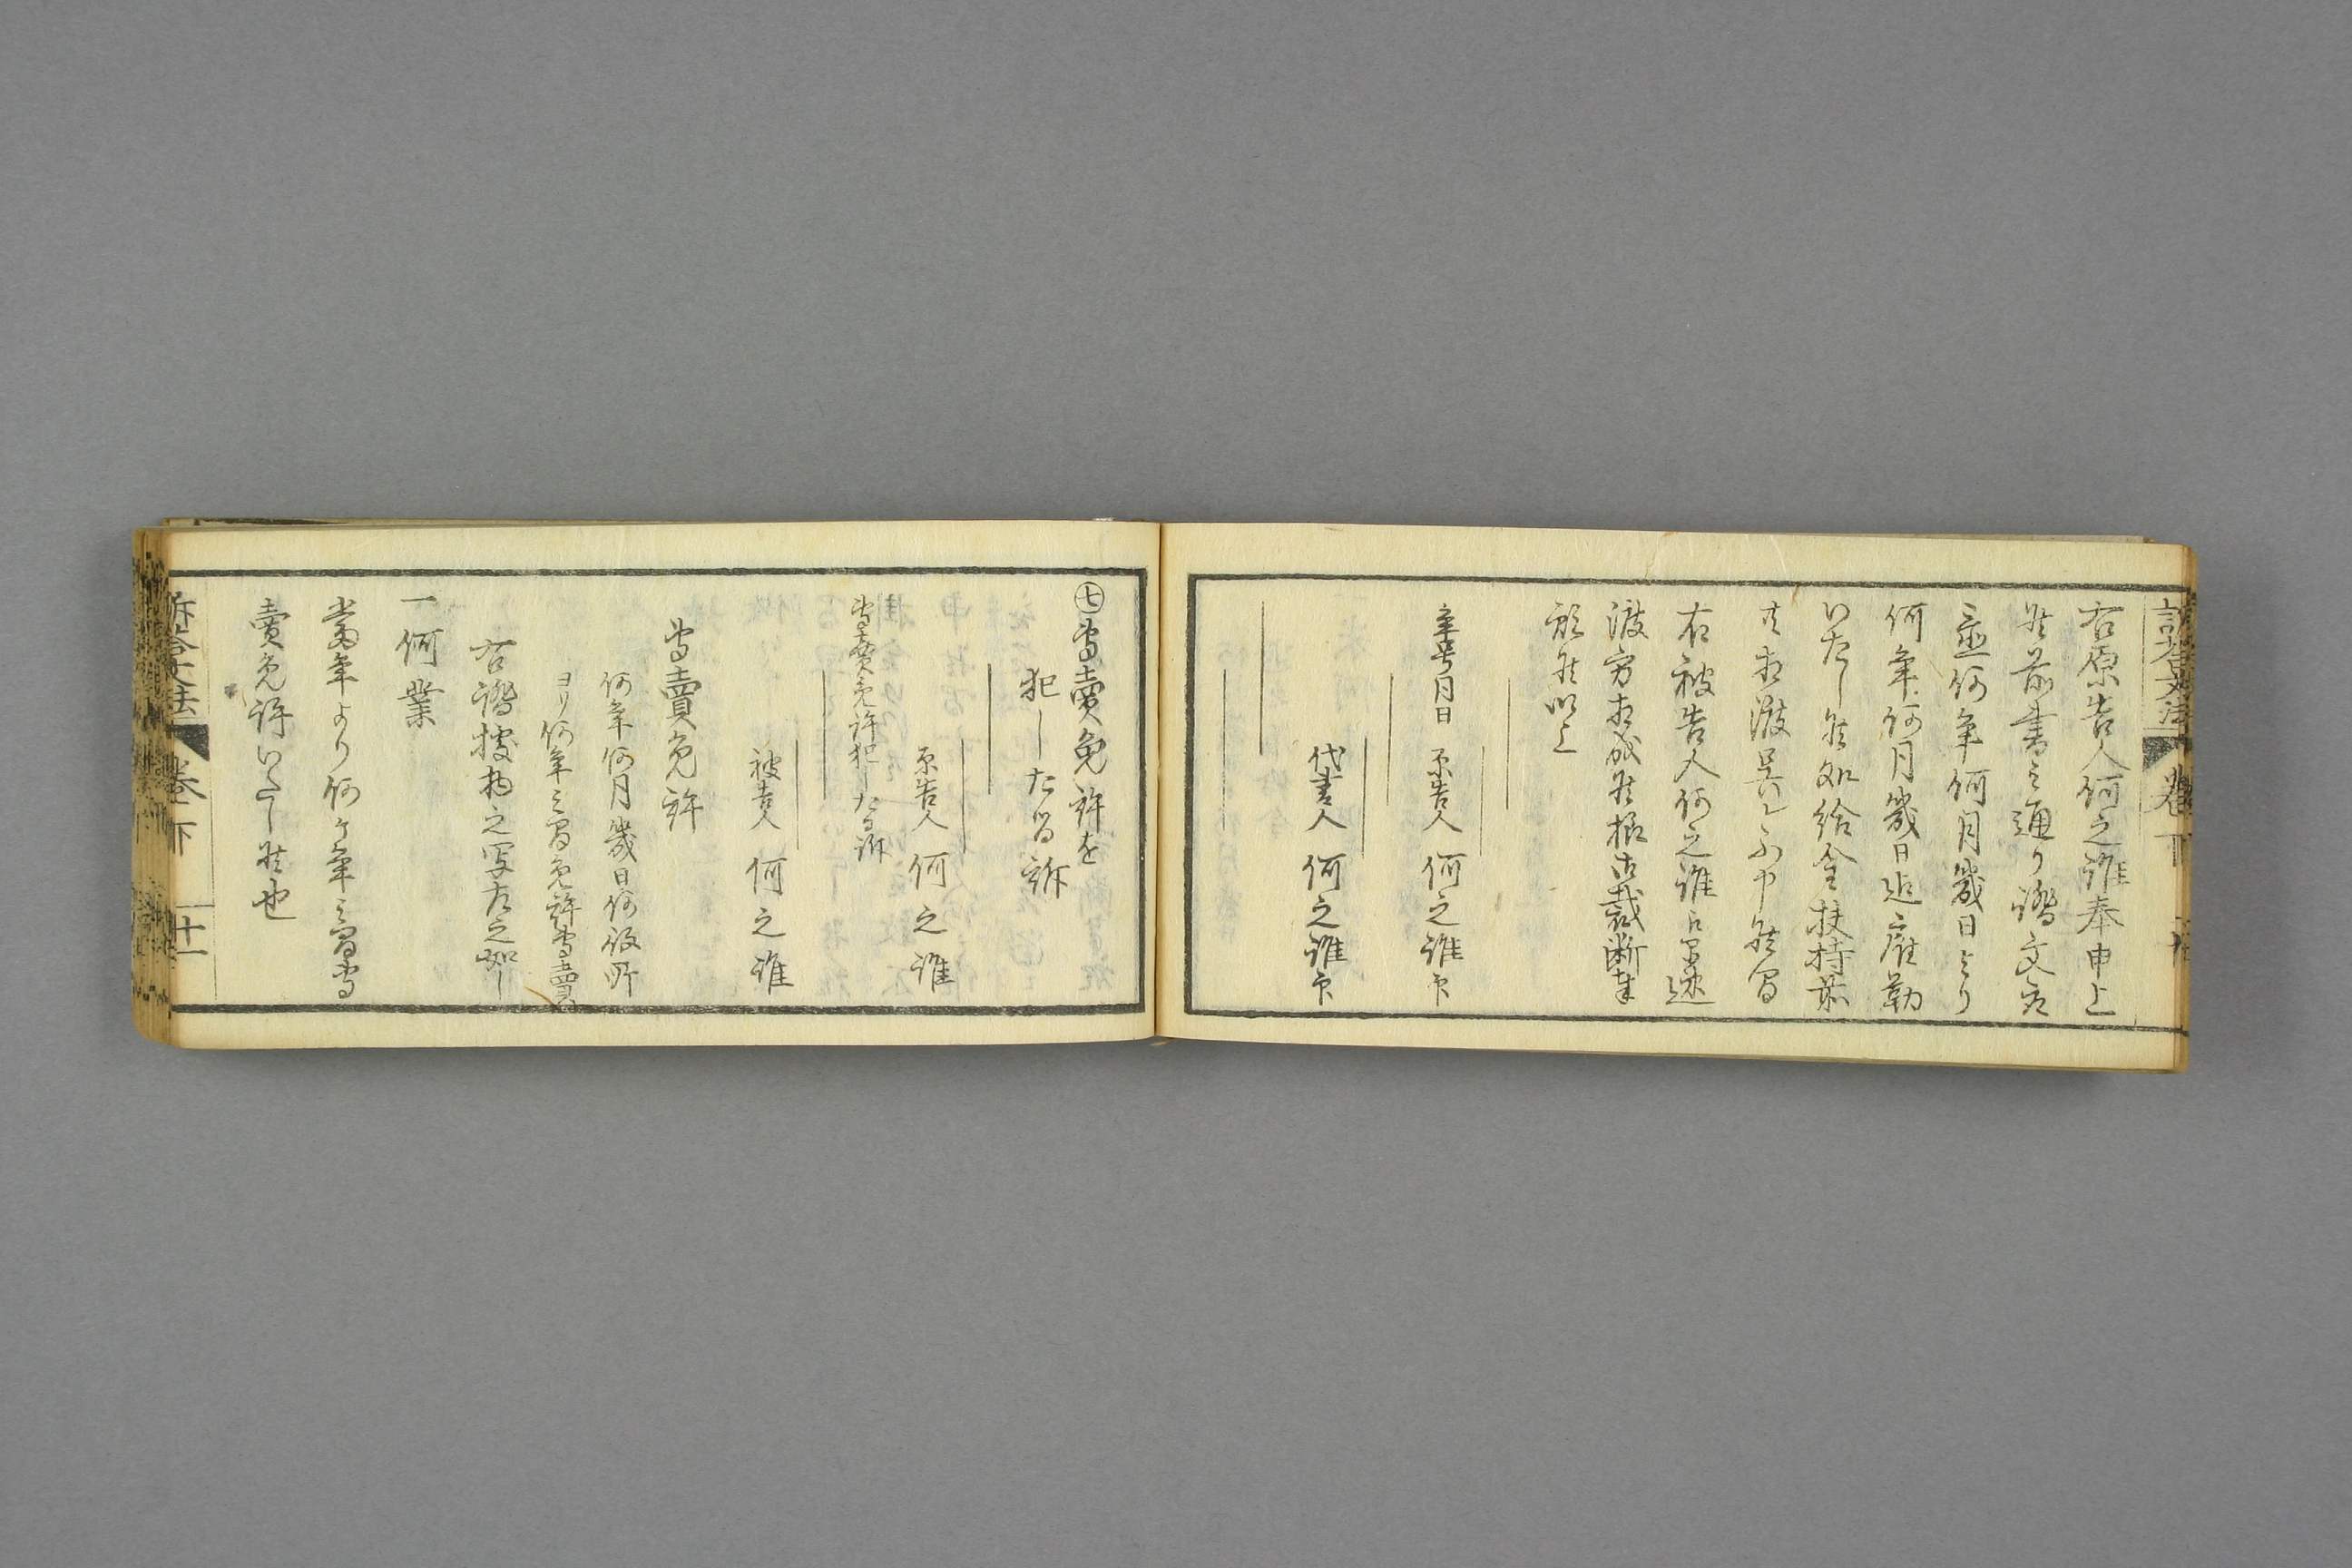 右原告人何之誰奉申上
候前書之通り證文を
並何年何月幾日より
何年何月幾日迄雇勤
いたし候処給金扶持并
右被告人何之誰江早速
渡方相成候様御裁断奉
願候以上
年号月日 原告人 何之誰印
代書人 何之誰印
㊆専賣免許を
犯したる訴
原告人 何之誰
専賣免許犯したる訴
被告人 何之誰
専賣免許
何年何月幾日何役所
ヨリ何年之間免許専賣
右證據物之写左之如し
一何業
當年より何ヶ年之間専
賣免許いたし候也
訴答文法 巻下 十一